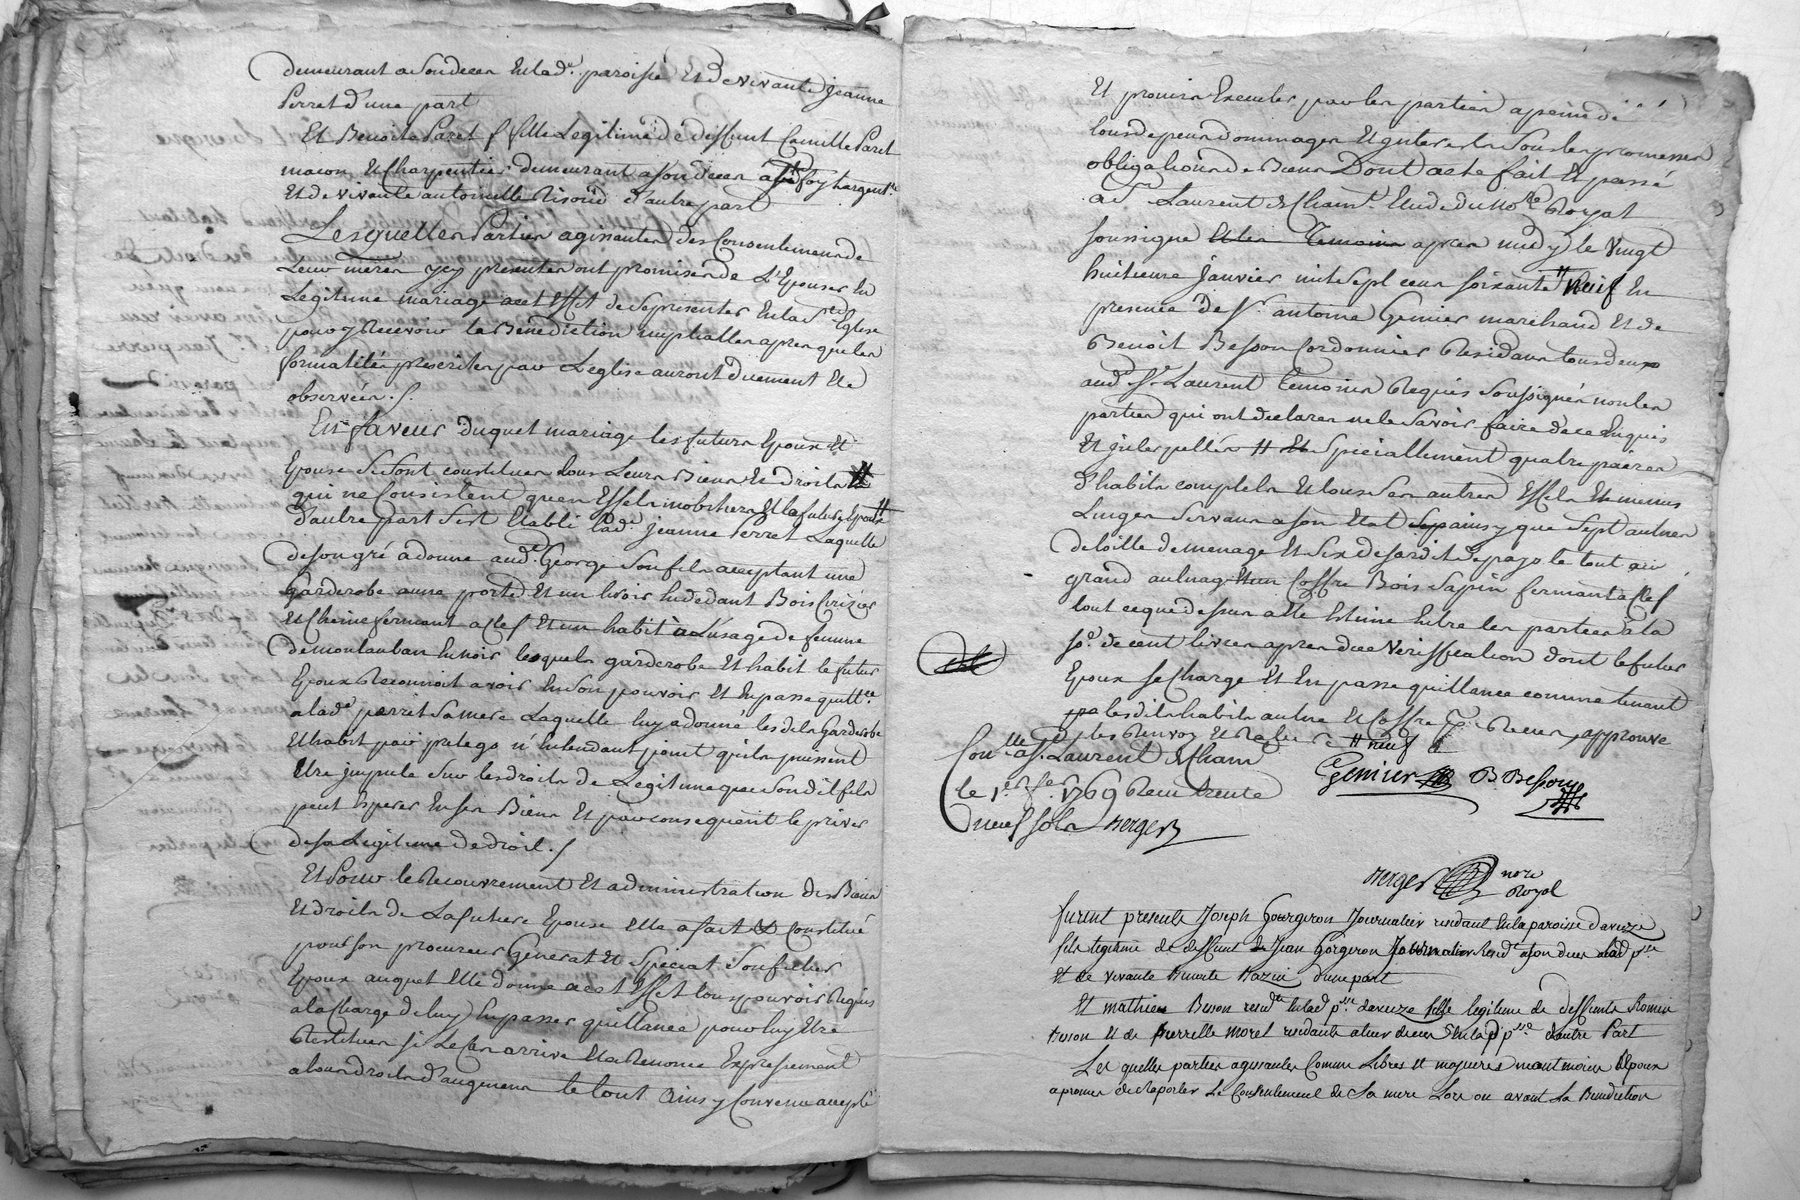 demeurant a son deces en lad.e paroisse et de vivante jeanne
Perret d'une part
Et Benoite Paret fille Legitime de deffunt Camille Paret
macon et Charpentier demeurant a son deces a ste foy Largentre
et de vivante antoinette d'autre part
Lesquelles Parties agissantes des Consentement de
Leurs meres ycy presentes ont promises de s'Epouser En
Legitime mariage a cet effet de se presenter En la Ste Eglise
pour y Recevoir la Benediction nuptialle apres que les
formalités prescrites par L'eglise auront duement Eté
observées./.
En faveur duquel mariage les futurs Epoux et
Epouse se sont constitues tous Leurs Biens et droits
qui ne Consistent qu'en Effets mobiliers et la future Epouse
d'autre part s'est Etabli lad.e jeanne Perret Laquelle
de son gré a donne aud. George son fils acceptant une
Garderobe a une porte et un tiroir au dedant Bois Cerizier
et Chene fermant a clef et un habit a L'usage de femme
de montauban En noir lesquels garderobe et habit le futur
Epoux Reconnoit avoir En son pouvoir et En passe quitt.ce
a lad.e perret sa mere Laquelle luy a donné lesdits Garderobe
et habit par prelegs n'Entendant point qu'ils puissent
Etre imputés sur les droits de Legitime que son dit fils
peut Esperer En ses Biens et par consequent le priver
de sa Legitime de droit./
Et Pour le Recouvrement et administration des Biens
et droits de La future Epouse Elle a fait et Constitué
pour son procureur General et Special son futur
Epoux auquel Elle donne a cet Effet tous pouvoirs Requis
a la Charge de luy En passer quittance pour luy Etre
Restitues si le Cas arrive et a Renoncé Expressement
a tous droits d'augment le tout Ainsy Convenu accepté
Et promis Executer par les parties a peine de
tous depens dommages et interets sous les promesses
obligations de Biens Dont acte fait et passé
a St Laurent de Cham.t Etude du No.re Royal
soussigne et les Temoins apres midy le vingt
huitieme janvier mil sept cens soixante neuf En
presence de Sr. antoine Grenier marchand et de
Benoit Besson Cordonnier Residans tous deux
aud. St. Laurent Temoins Requis soussignés non les
parties qui ont declarer ne le savoir faire de ce Enquis
et interpellés et speciallement quatre paires
d'habits complets et tous ses autres Effets et menus
Linges servans a son Etat que sept aulnes
de toille de menage et six de le tout au
grand aulnage et un Coffre Bois sapin fermant a clef
tout ce que dessus a ete Estimé Entre les parties a la
so.e de cent livres apres due veriffication dont le futur
Epoux se Charge et En passe quittance comme tenant
lesdits habits aulne et Coffre approuve
les Renvoy et Rature neuf
Con.lle a St. Laurent de Cham.t
le 1.er 1769 Recu trente
neuf sols Berger
Grenier B. Besson
Berger nore
Royal
furent presents Joseph Gourgeron Journalier residant En la paroisse d'aveize
fils legitime de deffunt Jean Gorgeron Resid.t a son deces alad p.sse
et de vivante Benoite Bazin d'une part
Et mathieu Besson resid.te en lad p.sse d'aveize fille legitime de deffunt Romin
Besson et de Pierrette Morel residante a leur deces En lad p.sse d'autre Part
Les quelles parties agissantes Comme Libres et majeures neantmoins L'Epoux
a promis de Raporter Le Consentement de Sa mere Lors ou avant La Benediction